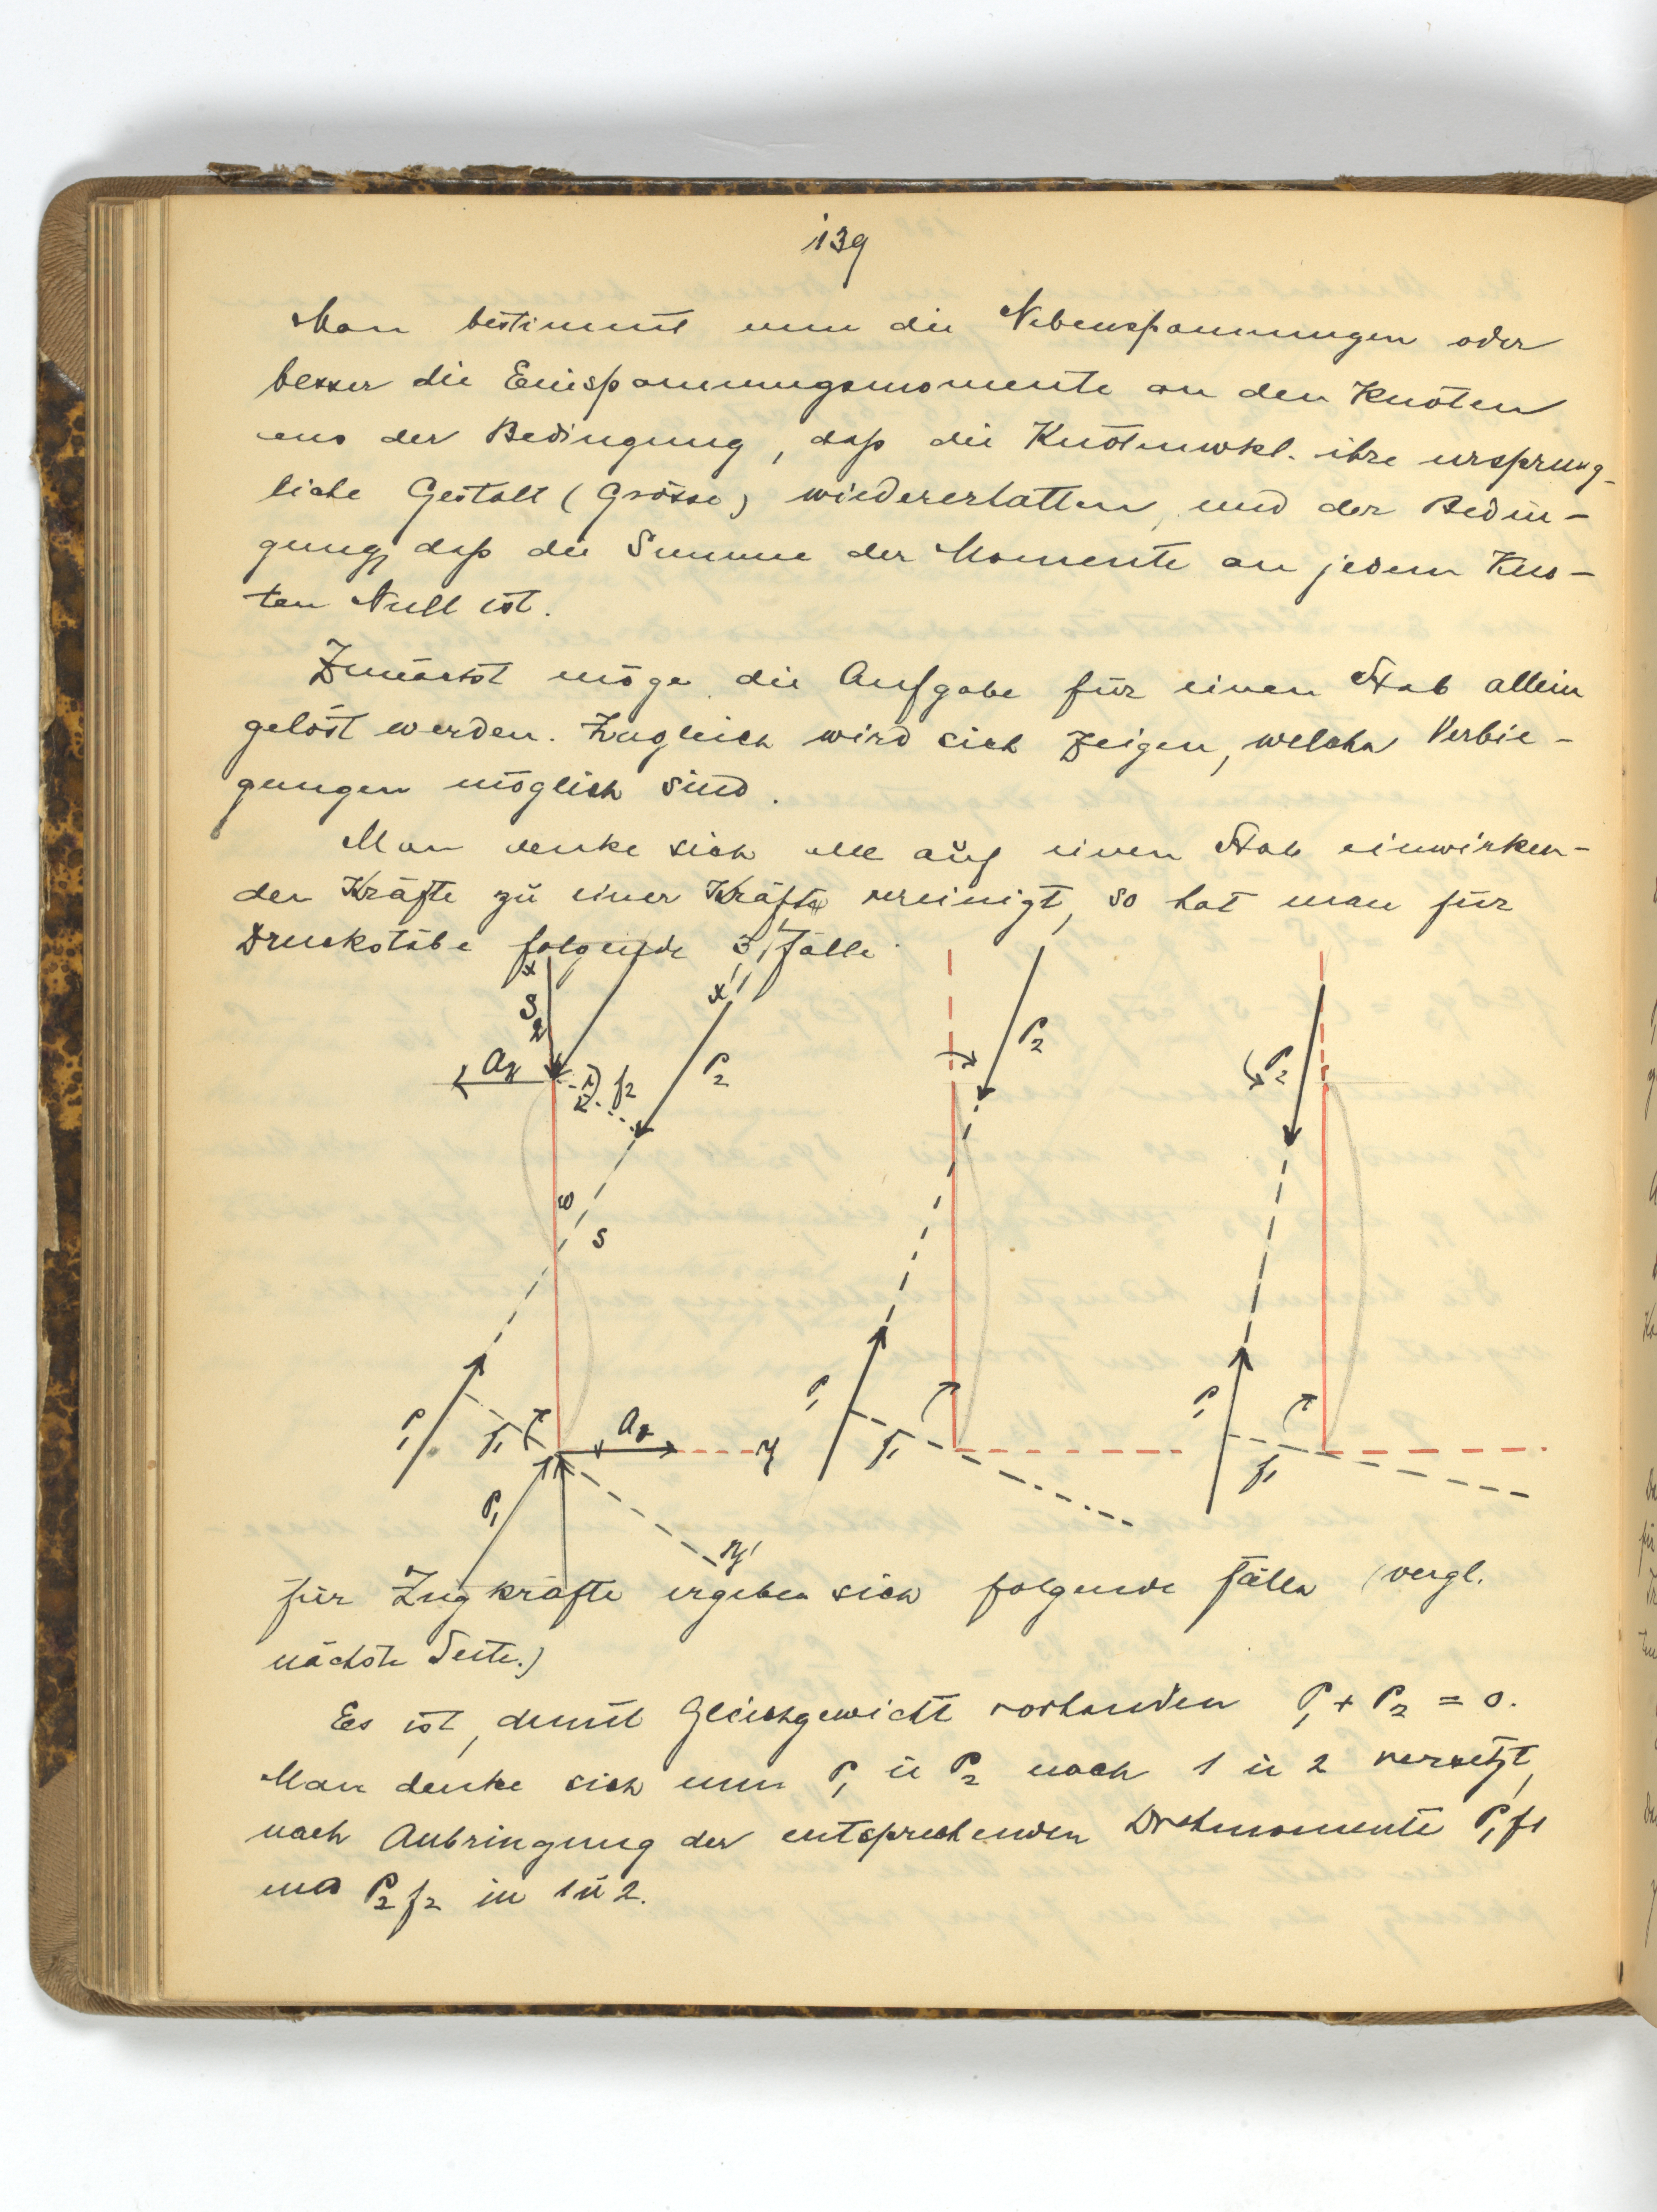 139
Man bestimmt nun die Nebenspannungen oder
besser die Einspannungsmomente an den Knoten
aus der Bedingung, daß die Knotenwkl. ihre ursprüng-
liche Gestalt (Grösse) wiedererhalten, und der Bedin-
gung, daß die Summe der Momente an jedem Kno-
ten Null ist.
Zunächst möge die Aufgabe für einen Stab allein
gelöst werden. Zugleich wird sich zeigen, welche Verbie-
gungen möglich sind.
Man denke sich alle auf einen Stab einwirken-
den Kräfte zu einer Kräfte vereinigt, so hat man für
Druckstäbe folgende 3 Fälle
x
S
2
x'
P₂
f₂
ω
s
P₁
f₁
y
P₁
y'
P₂
P₁
f₁
P₂
P₁
f₁
für Zugkräfte ergeben sich folgende Fälle (vergl.
nächste Seite.)
Es ist, damit Gleichgewicht vorhanden P₁ + P₂ = 0.
Man denke sich nun P₁ u P₂ nach 1 u 2 versetzt,
nach Anbringung der entsprechenden Drehmomente P₁f₁
und P₂f₂ in 1 u 2.